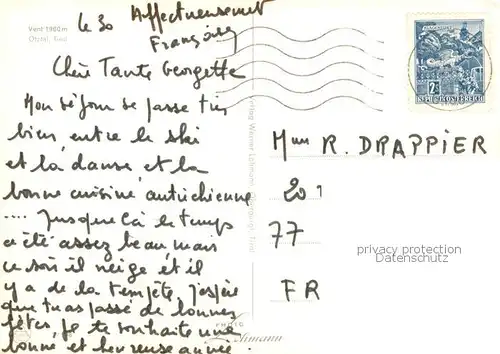 Vent 1900 m
Ötztal, Tirol
Le 30
Affectueusement
Françoise
Chère Tante Georgette
Mon séjour se passe très
bien, entre le ski
et la danse, et la
bonne cuisine autrichienne
.... Jusque là le temps
a été assez beau, mais
ce soir il neige et il
y a de la tempête, j'espère
que tu as passé de bonnes
fêtes, je te souhaite une
bonne et heureuse année!
2S
REPUBLIK ÖSTERREICH
Mme R. DRAPPIER
20
77
FR
privacy protection
Datenschutz
PHOTO
Lohmann